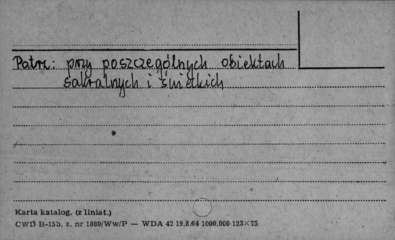 Patrz: przy poszczególnych obiektach
sakralnych i świeckich
Karta katalog. (z liniat.)
CWD B-15b, z. nr 1809/Ww/P — WDA 42 19.8.64 1000.000 123×75